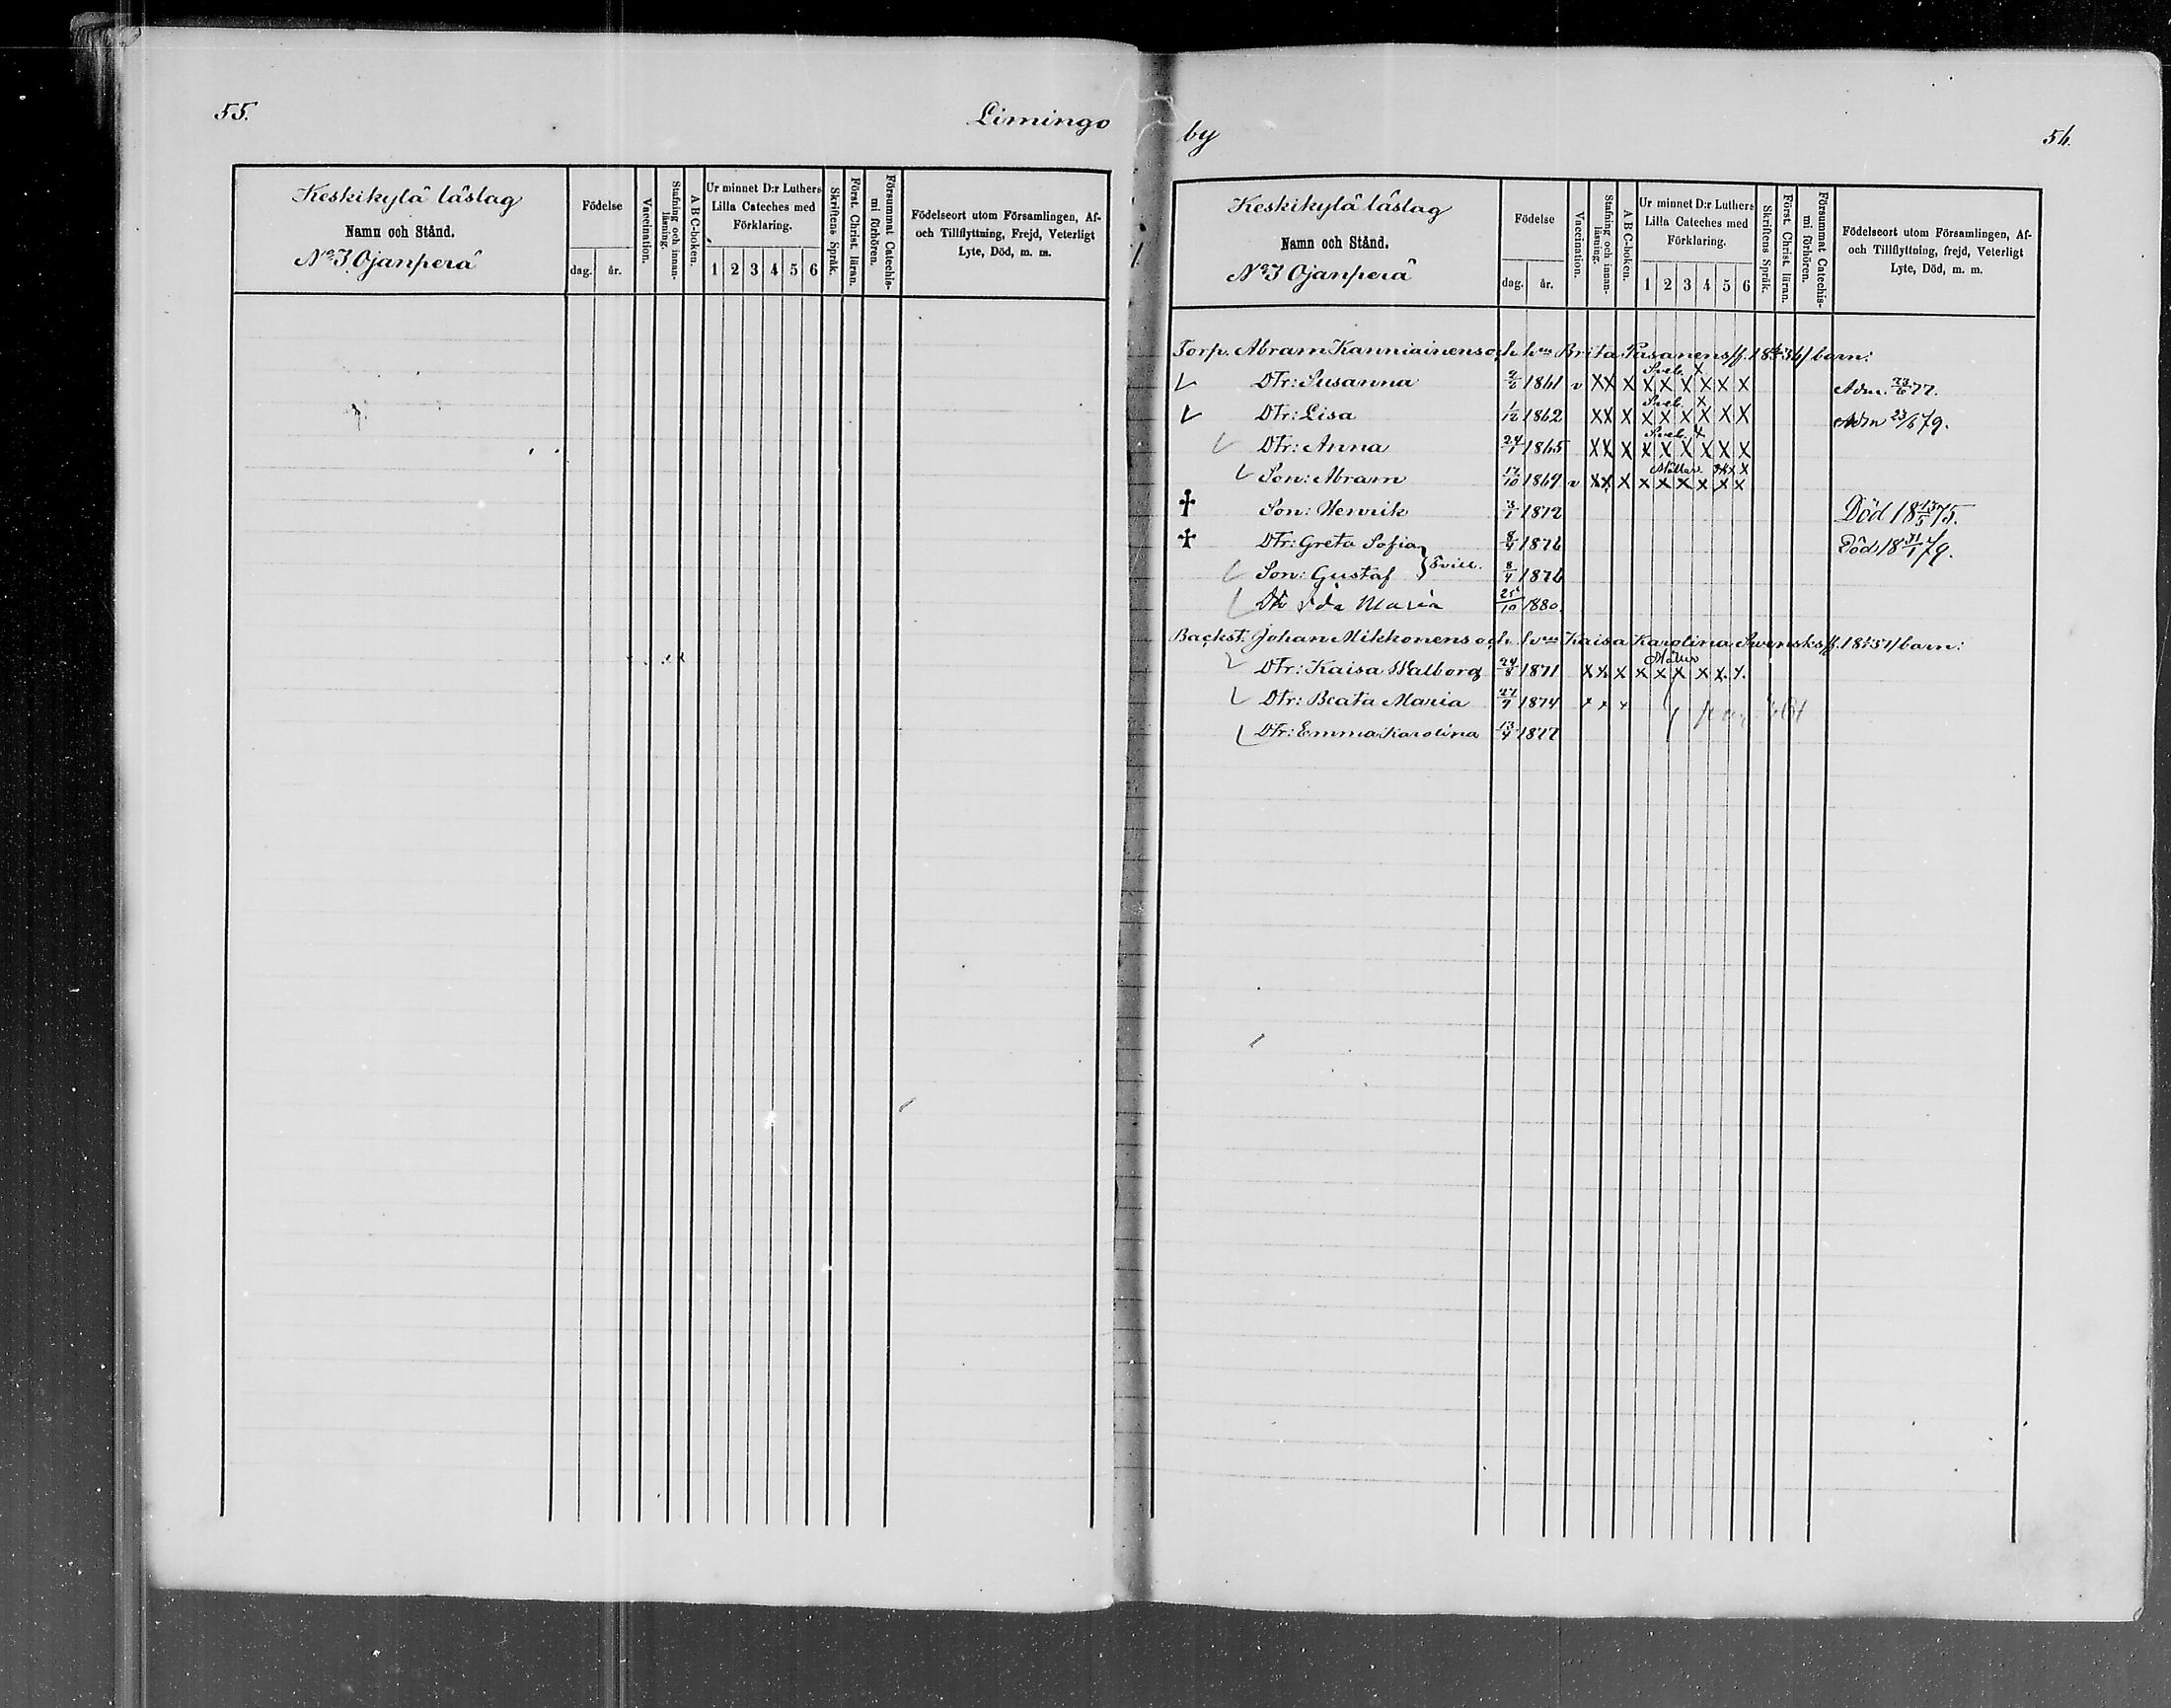 55.
Limingo
Keskikylä läslag
Namn och Stånd.
No 3 Ojanperä
Födelse
dag. år.
Vaccination.
Stafning och innanläsning.
A B C-boken.
Ur minnet D:r Luthers
Lilla Cateches med
Förklaring.
1 2 3 4 5 6
Skriftens Språk.
Först. Christ. läran.
Försummat Catechismi förhören.
Födelseort utom Församlingen, Af-
och Tillflyttning, Frejd, Veterligt
Lyte, Död, m. m.
by
56.
Keskikylä läslag
Namn och Stånd.
No 3 Ojanperä
Födelse
dag. år.
Vaccination.
Stafning och innanläsning.
A B C-boken.
Ur minnet D:r Luthers
Lilla Cateches med
Förklaring.
1 2 3 4 5 6
Skriftens Språk.
Först. Christ. läran.
Försummat Catechismi förhören.
Födelseort utom Församlingen, Af-
och Tillflyttning, frejd, Veterligt
Lyte, Död, m. m.
Torp. Abram Kanniainens och hus Brita Pasanens barn:
Sveb. X
Dtr: Susanna 1861 v XX X X X X X X X Adm. 23/6 77.
Sveb. X
Dtr: Lisa 1/12 1862 XX X X X X X X X Adm 23/6 79.
Sveb. X
Dtr: Anna 24/7 1865 XX X X X X X X X
Möller X X
Son: Abram 17/10 1869 v XX X X X X X X X
† Son: Henrik 3/1 1872 Död 18 13/5 75.
† Dtr: Greta Sofia 8/4 1876 Död 18 31/1 79.
Son: Gustaf } Tvill. 8/4 1876
Dtr Ida Maria 25/10 1880.
Backst. Johan Mikkonens och hus Kaisa Karolina Svensks barn:
Möller
Dtr: Kaisa Walborg 24/8 1871 X X X X X X X X X
Dtr: Beata Maria 1874 x x x
Dtr: Emma Karolina 13/4 1877